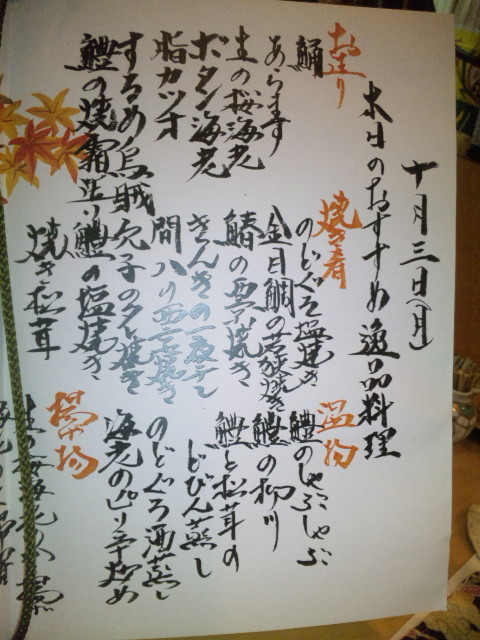 十月三日(月)
本日のおすすめ逸品料理
お造り
鯒
あらます
生の桜海老
ボタン海老
脂カツオ
するめ烏賊
鱧の焼霜造り
焼き肴
のどぐろ塩焼き
金目鯛の若狭焼き
鰆の西京焼き
きんきの一夜干し
間八り西京焼き
穴子のタレ焼き
鱧の塩焼き
焼き松茸
温物
鱧のしゃぶしゃぶ
鱧の柳川
鱧と松茸の
どびん蒸し
のどぐろ酒蒸し
海老のピリ辛炒め
揚げ物
生の桜海老のかき揚